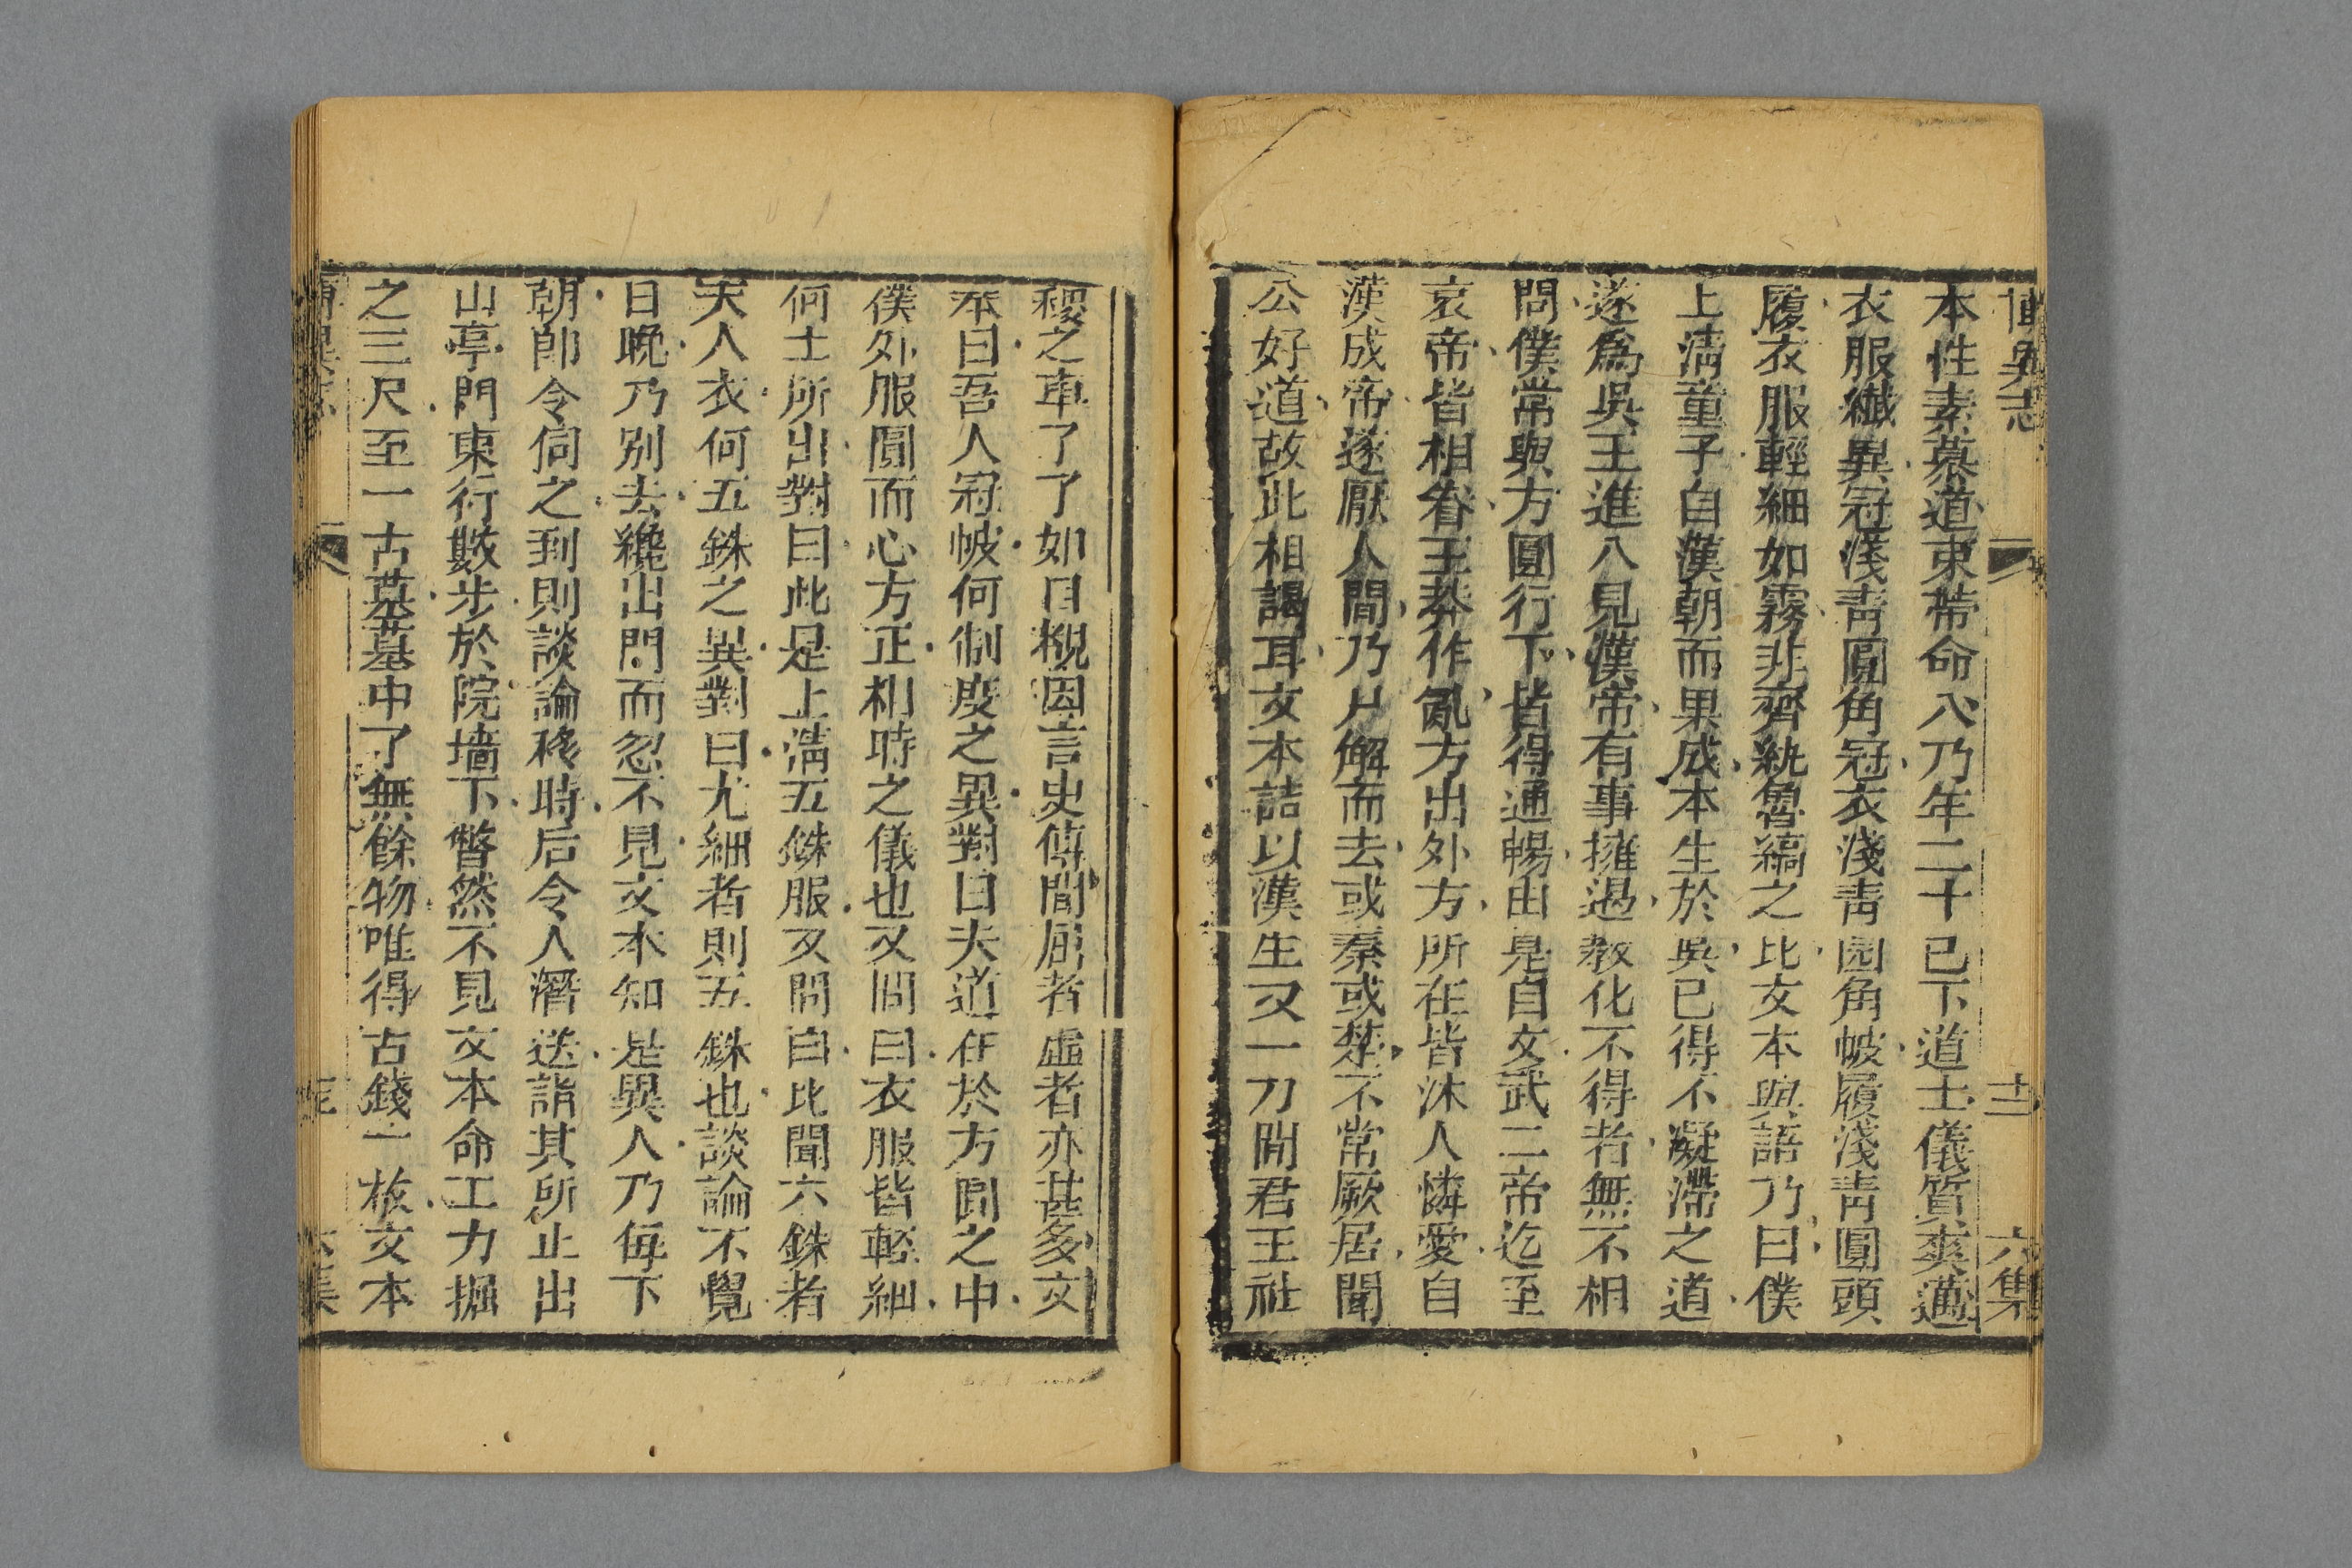 博異志 十二 六集
本性素慕道束帶命入乃年二十已下道士儀質爽邁
衣服纖異冠淺青圓角冠衣淺青园角帔履淺青圓頭
履衣服輕細如霧非齊紈魯縞之比文本與語乃曰僕
上清童子自漢朝而果成本生於吳已得不凝滯之道
遂爲吳王進入見漢帝有事擁遏教化不得者無不相
問僕常與方圓行下皆得通暢由是自文武二帝迄至
哀帝皆相眷王莽作亂方出外方所在皆沐人憐愛自
漢成帝遂厭人間乃尸解而去或秦或楚不常厥居聞
公好道故此相謁耳文本詰以漢生又一刀間君王社
稷之事了了如目覩因言史傳間屈者虛者亦甚多文
本曰吾人冠帔何制度之異對曰夫道在於方圓之中
僕外服圓而心方正相時之儀也又問曰衣服皆輕細
何土所出對曰此是上清五銖服又問曰比聞六銖者
天人衣何五銖之異對曰尤細者則五銖也談論不覺
日晚乃別去纔出門而忽不見文本知是異人乃每下
朝即令伺之到則談論移時后令人潛送詣其所止出
山亭門東行數步於院墻下瞥然不見文本命工力掘
之三尺至一古墓墓中了無餘物唯得古錢一枚文本